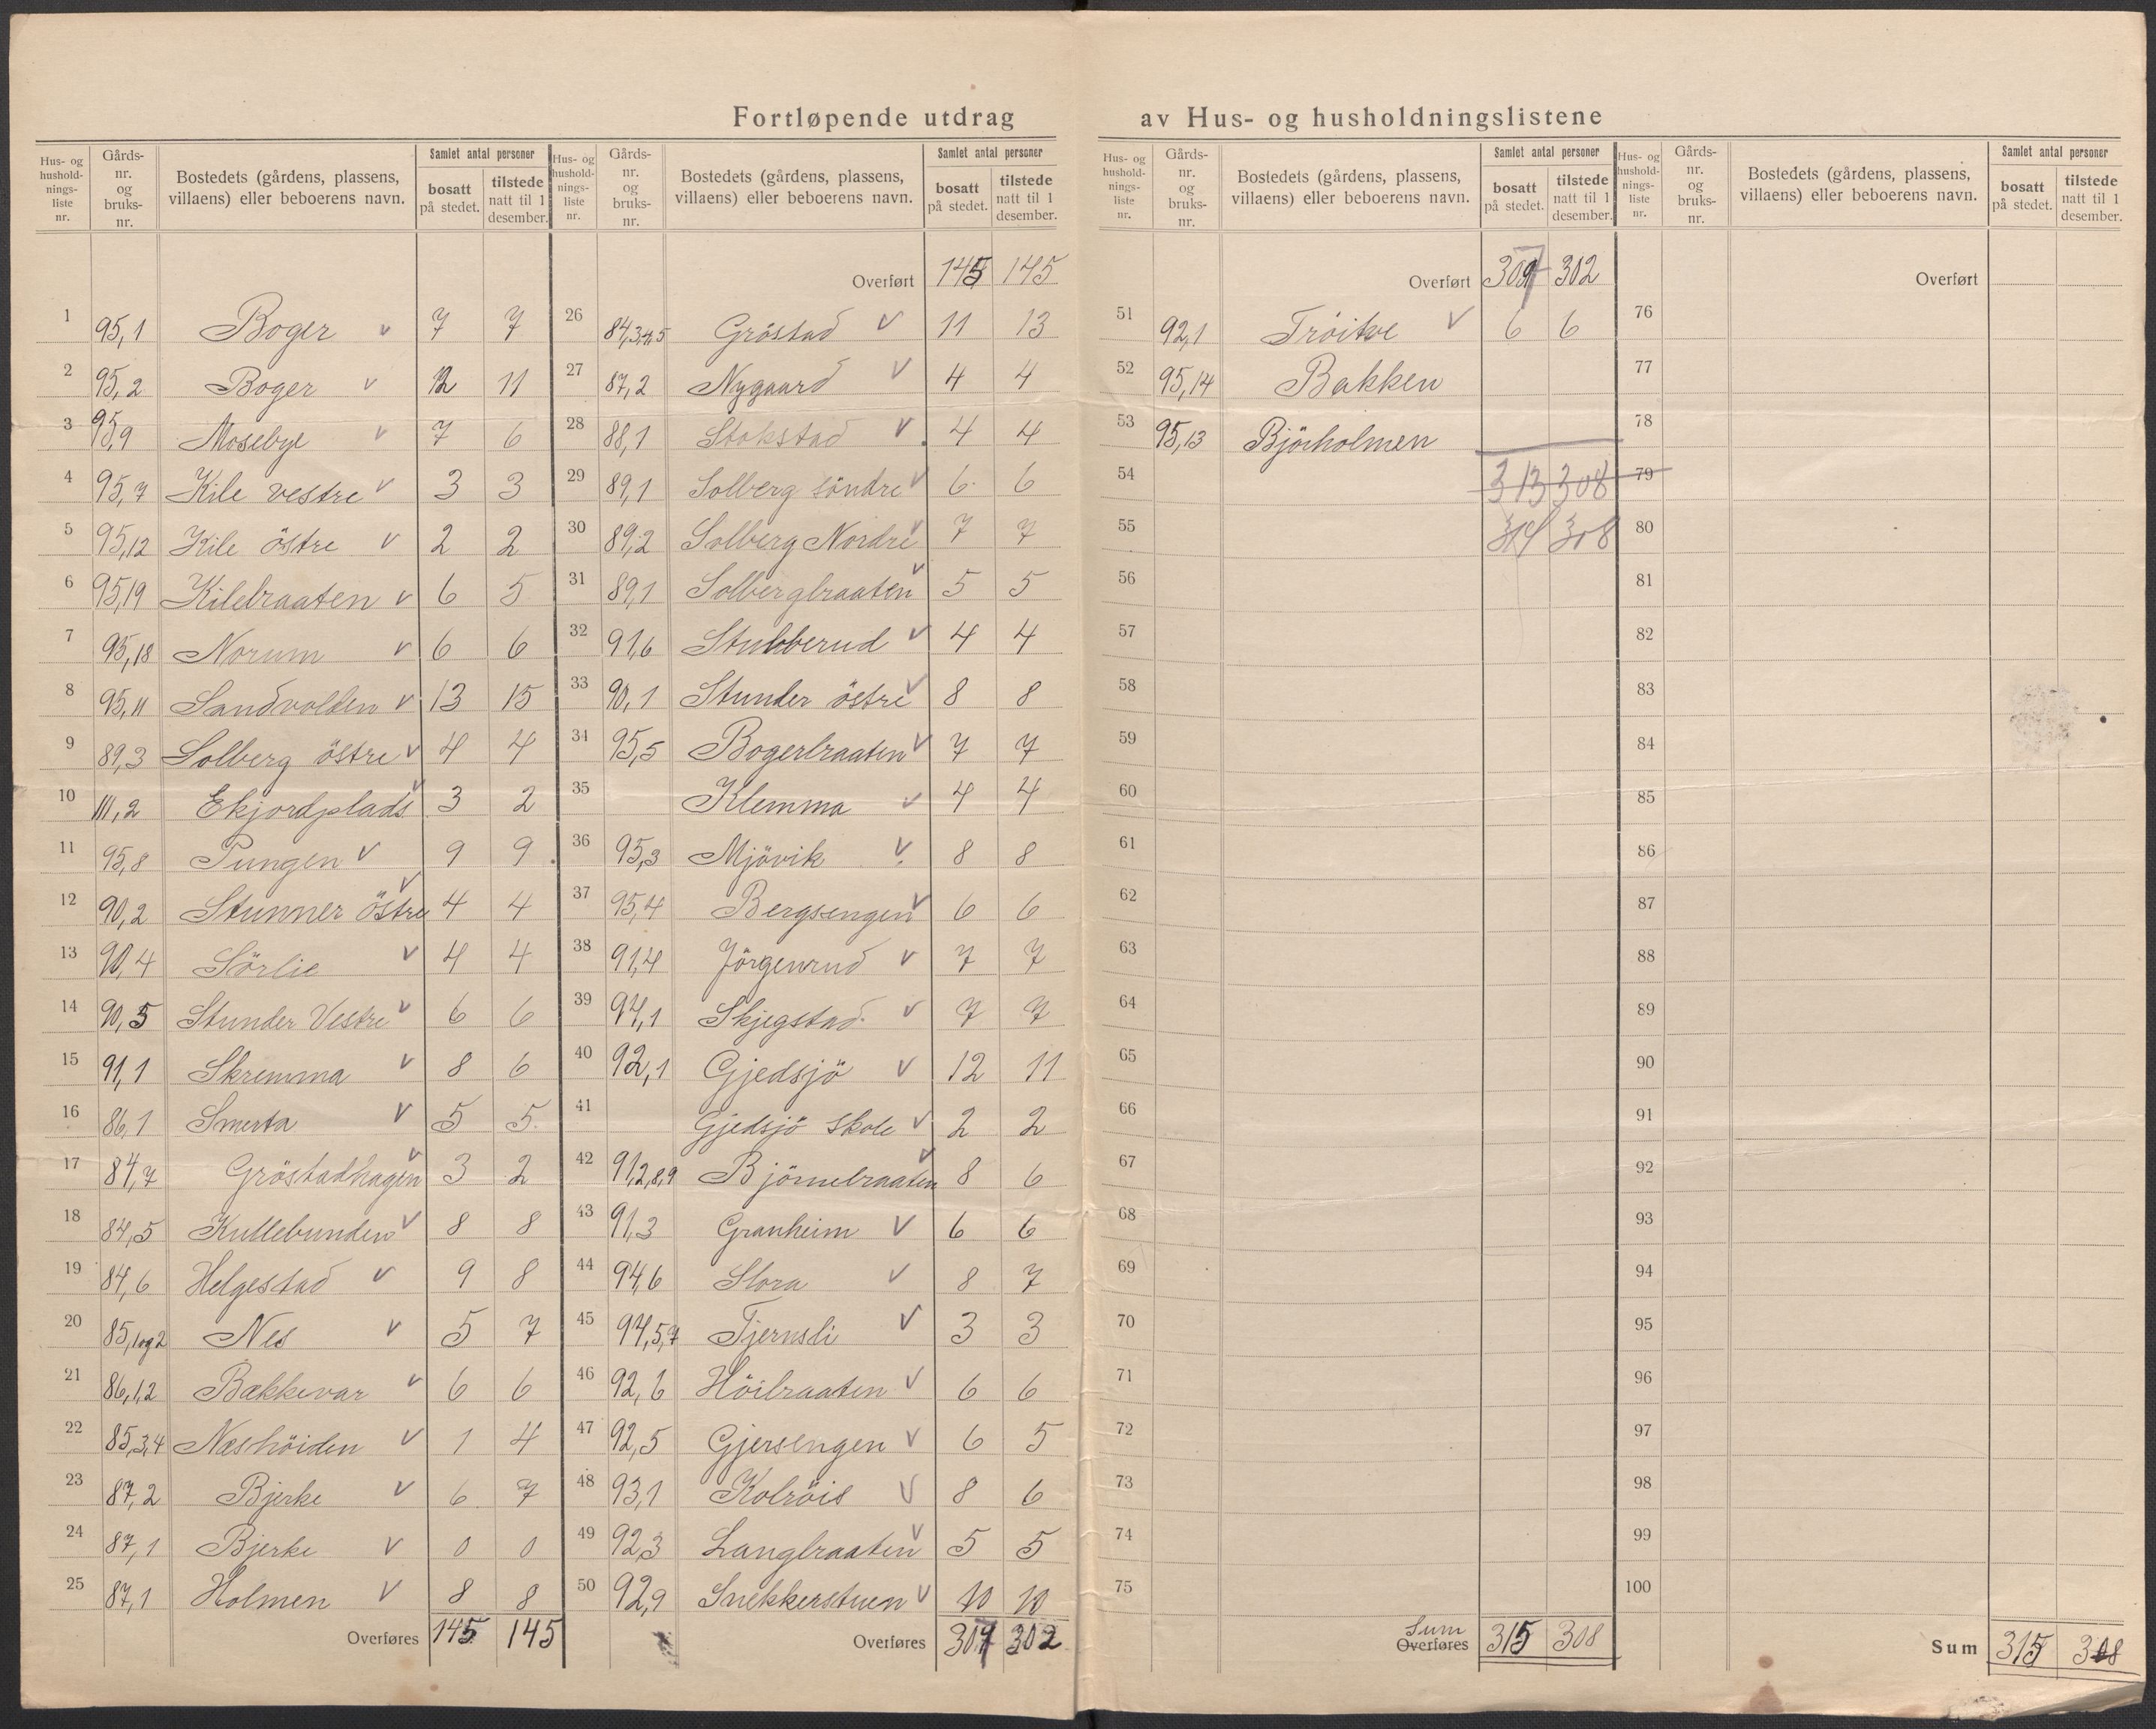 Fortløpende utdrag av Hus- og husholdningslistene
Hus- og hushold-nings-liste nr. Gårds-nr. og bruks-nr. Bostedets (gårdens, plassens, villaens) eller beboerens navn. Samlet antal personer bosatt på stedet. tilstede natt til 1 desember.
Hus- og hushold-nings-liste nr. Gårds-nr. og bruks-nr. Bostedets (gårdens, plassens, villaens) eller beboerens navn. Samlet antal personer bosatt på stedet. tilstede natt til 1 desember.
1 95,1 Boger v 7 7
2 95,2 Boger v 12 11
3 95,9 Mosebye v 7 6
4 95,7 Kile vestre v 3 3
5 95,12 Kile östre v 2 2
6 95,19 Kilebraaten v 6 5
7 95,18 Norum v 6 6
8 95,11 Sandvolden v 13 15
9 89,3 Solberg östre v 4 4
10 111,2 Ekjordplads v 3 2
11 95,8 Pungen v 9 9
12 90,2 Stunner östre v 4 4
13 90,4 Sörlie v 4 4
14 90,5 Stunder Vestre v 6 6
15 91,1 Skremma v 8 6
16 86,1 Smerta v 5 5
17 84,7 Gröstadhagen v 3 2
18 84,5 Kullebunden v 8 8
19 84,6 Helgestad v 9 8
20 85,1og2 Nes v 5 7
21 86,1,2 Bækkevar v 6 6
22 85,3,4 Neshöiden v 1 4
23 87,2 Bjerke v 6 7
24 87,1 Bjerke v 0 0
25 87,1 Holmen v 8 8
Overføres 145 145
Overført 145 145
26 84,3,4,5 Gröstad v 11 13
27 87,2 Nygaard v 4 4
28 88,1 Stokstad v 4 4
29 89,1 Solberg söndre v 6 6
30 89,2 Solberg Nordre v 7 7
31 89,1 Solbergbraaten v 5 5
32 91,6 Stubberud v 4 4
33 90,1 Stunder östre v 8 8
34 95,5 Bogerbraaten v 7 7
35 Klemma v 4 4
36 95,3 Mjövik v 8 8
37 95,4 Bergsengen v 6 6
38 91,4 Jörgenrud v 7 7
39 94,1 Skjegstad v 7 7
40 92,1 Gjedsjö v 12 11
41 Gjedsjö skole v 2 2
42 91,2,8,9 Björnebraaten v 8 6
43 91,3 Granheim v 6 6
44 94,6 Slora v 8 7
45 94,5,7 Tjernsli v 3 3
46 92,6 Höibraaten v 6 6
47 92,5 Gjersengen v 6 5
48 93,1 Kolröis v 8 6
49 92,3 Langbraaten v 5 5
50 92,9 Snekkerstuen v 10 10
Overføres 309 302
Hus- og hushold-nings-liste nr. Gårds-nr. og bruks-nr. Bostedets (gårdens, plassens, villaens) eller beboerens navn. Samlet antal personer bosatt på stedet. tilstede natt til 1 desember.
Hus- og hushold-nings-liste nr. Gårds-nr. og bruks-nr. Bostedets (gårdens, plassens, villaens) eller beboerens navn. Samlet antal personer bosatt på stedet. tilstede natt til 1 desember.
Overført 309 302
51 92,1 Tröitve v 6 6
52 95,14 Bakken
53 95,13 Björholmen
54 313 308
55 314 308
56
57
58
59
60
61
62
63
64
65
66
67
68
69
70
71
72
73
74
75
Sum
Overføres 315 308
Overført
76
77
78
79
80
81
82
83
84
85
86
87
88
89
90
91
92
93
94
95
96
97
98
99
100
Sum 315 308